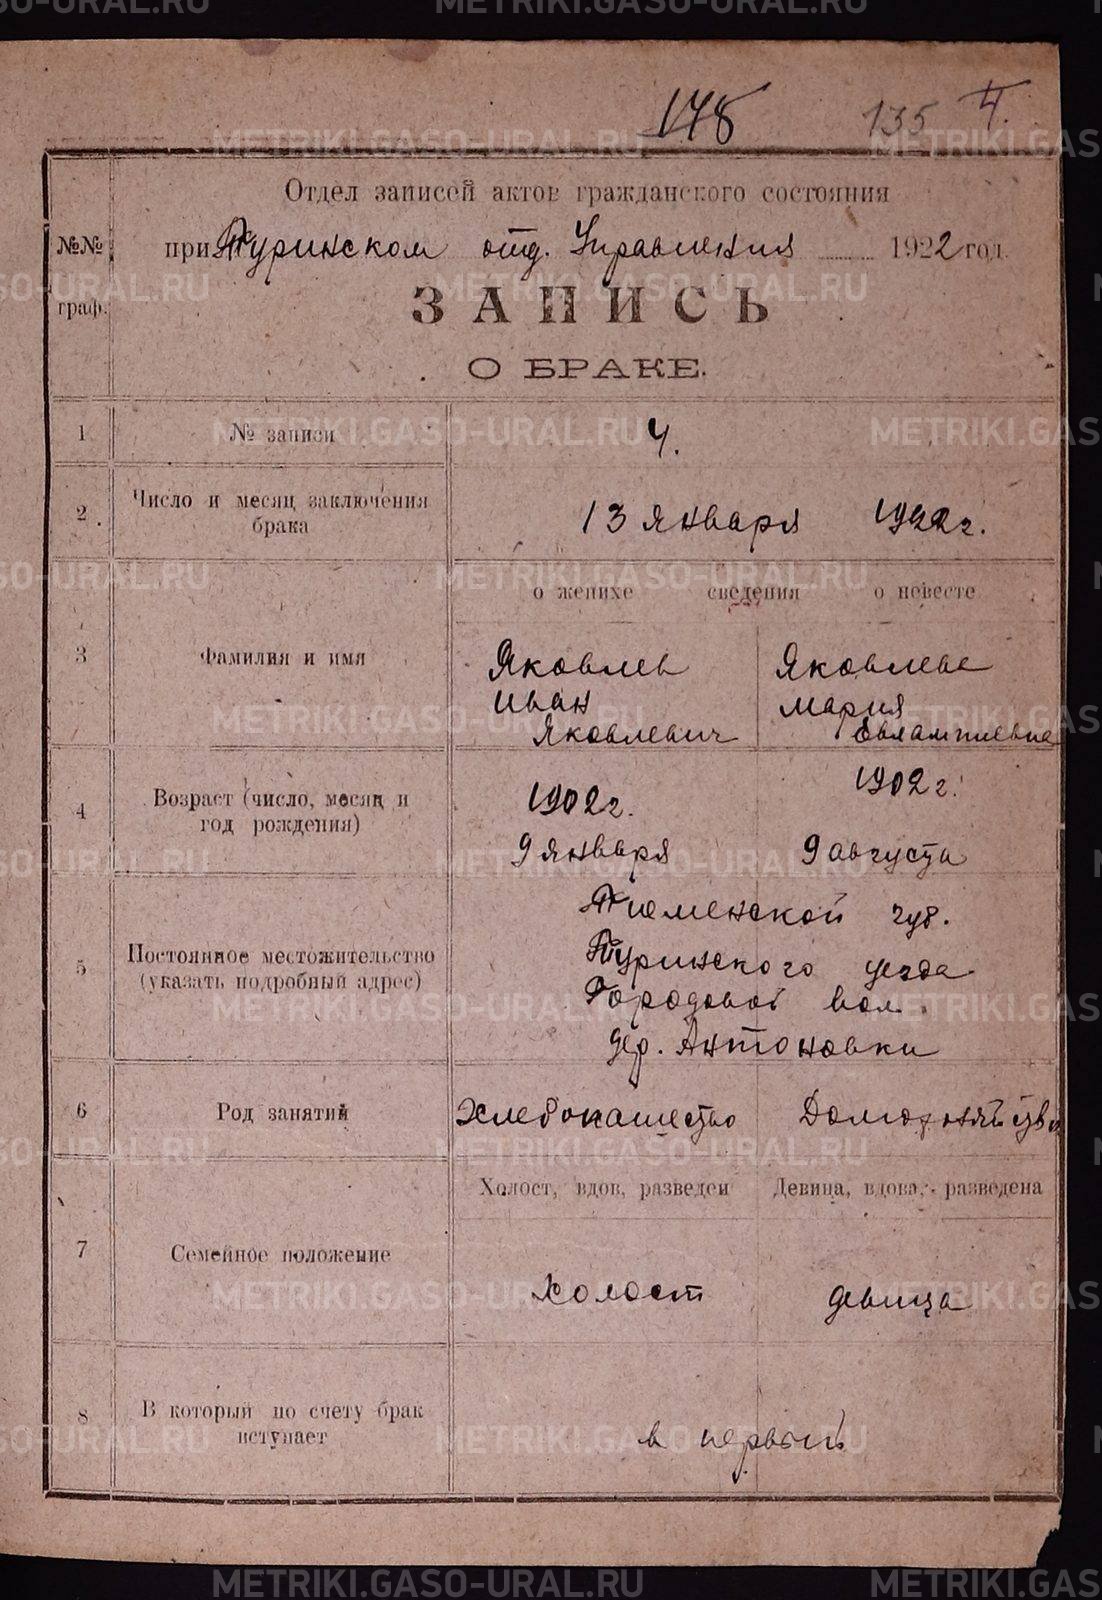 METRIKI.GASO-URAL.RU
178 135 4.
Отдел записей актов гражданского состояния
№№ граф.
при Туринском отд. Управления 1922 год.
ЗАПИСЬ
О БРАКЕ.
1 № записи 4.
2 Число и месяц заключения брака 13 января 1922 г.
о женихе сведения о невесте
3 Фамилия и имя
Яковлев Яковлева
Иван Мария
Яковлевич Евлампиевна
4 Возраст (число, месяц и год рождения)
1902 г. 1902 г.
9 января 9 августа
5 Постоянное местожительство (указать подробный адрес)
Тюменской губ.
Туринского уезда
Городовой вол.
дер. Антоновки
6 Род занятий Хлебопашество
Холост, вдов, разведен Девица, вдова, разведена
7 Семейное положение холост девица
8 В который по счету брак вступает в первый
METRIKI.GASO-URAL.RU